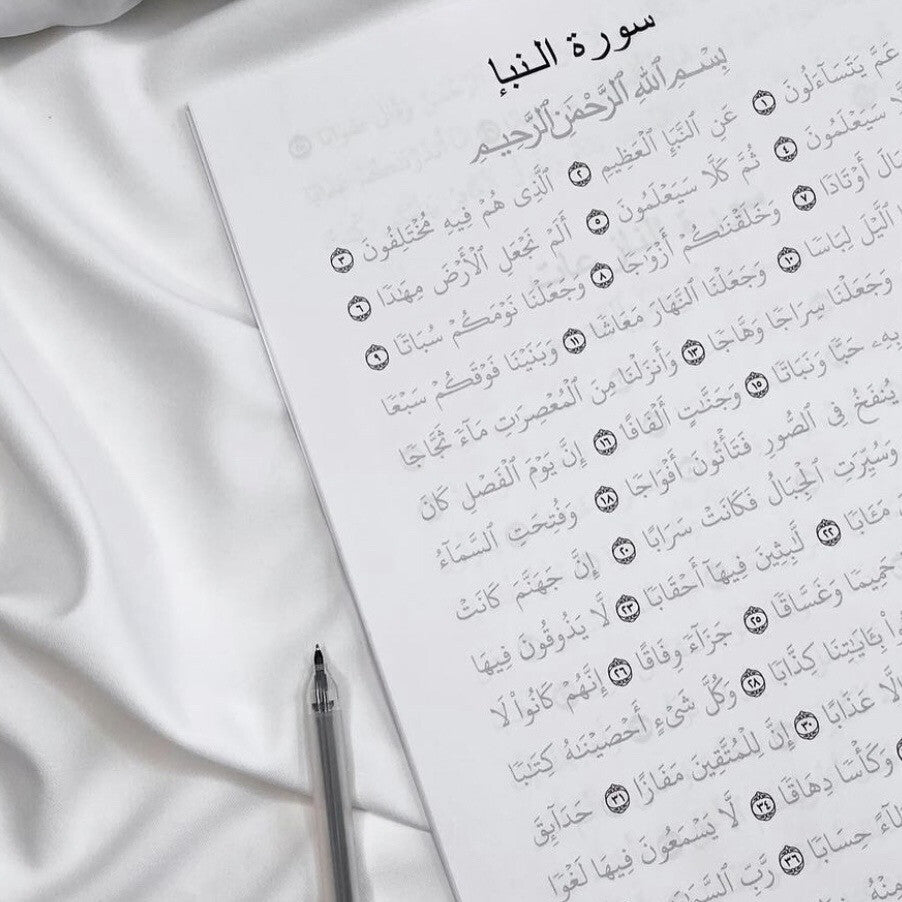 سورة النبإ
بِسْمِ ٱللَّهِ ٱلرَّحْمَٰنِ ٱلرَّحِيمِ
عَمَّ يَتَسَآءَلُونَ ١ عَنِ ٱلنَّبَإِ ٱلْعَظِيمِ ٢ ٱلَّذِى هُمْ فِيهِ مُخْتَلِفُونَ ٣
سَيَعْلَمُونَ ٤ ثُمَّ كَلَّا سَيَعْلَمُونَ ٥ أَلَمْ نَجْعَلِ ٱلْأَرْضَ مِهَٰدًا ٦
أَوْتَادًا ٧ وَخَلَقْنَٰكُمْ أَزْوَٰجًا ٨ وَجَعَلْنَا نَوْمَكُمْ سُبَاتًا ٩
ٱلَّيْلَ لِبَاسًا ١٠ وَجَعَلْنَا ٱلنَّهَارَ مَعَاشًا ١١ وَبَنَيْنَا فَوْقَكُمْ سَبْعًا
وَجَعَلْنَا سِرَاجًا وَهَّاجًا ١٣ وَأَنزَلْنَا مِنَ ٱلْمُعْصِرَٰتِ مَآءً ثَجَّاجًا
حَبًّا وَنَبَاتًا ١٥ وَجَنَّٰتٍ أَلْفَافًا ١٦ إِنَّ يَوْمَ ٱلْفَصْلِ كَانَ
يُنفَخُ فِى ٱلصُّورِ فَتَأْتُونَ أَفْوَاجًا ١٨ وَفُتِحَتِ ٱلسَّمَآءُ
وَسُيِّرَتِ ٱلْجِبَالُ فَكَانَتْ سَرَابًا ٢٠ إِنَّ جَهَنَّمَ كَانَتْ
مَـَٔابًا ٢٢ لَّٰبِثِينَ فِيهَآ أَحْقَابًا ٢٣ لَّا يَذُوقُونَ فِيهَا
حَمِيمًا وَغَسَّاقًا ٢٥ جَزَآءً وِفَاقًا ٢٦ إِنَّهُمْ كَانُوا۟ لَا
بِـَٔايَٰتِنَا كِذَّابًا ٢٨ وَكُلَّ شَىْءٍ أَحْصَيْنَٰهُ كِتَٰبًا
إِلَّا عَذَابًا ٣٠ إِنَّ لِلْمُتَّقِينَ مَفَازًا ٣١ حَدَآئِقَ
وَكَأْسًا دِهَاقًا ٣٤ لَّا يَسْمَعُونَ فِيهَا لَغْوًا
حِسَابًا ٣٦ رَّبِّ
مِنْهُ